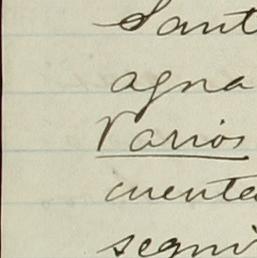 Sant
agna
Varios
cuenta
segui